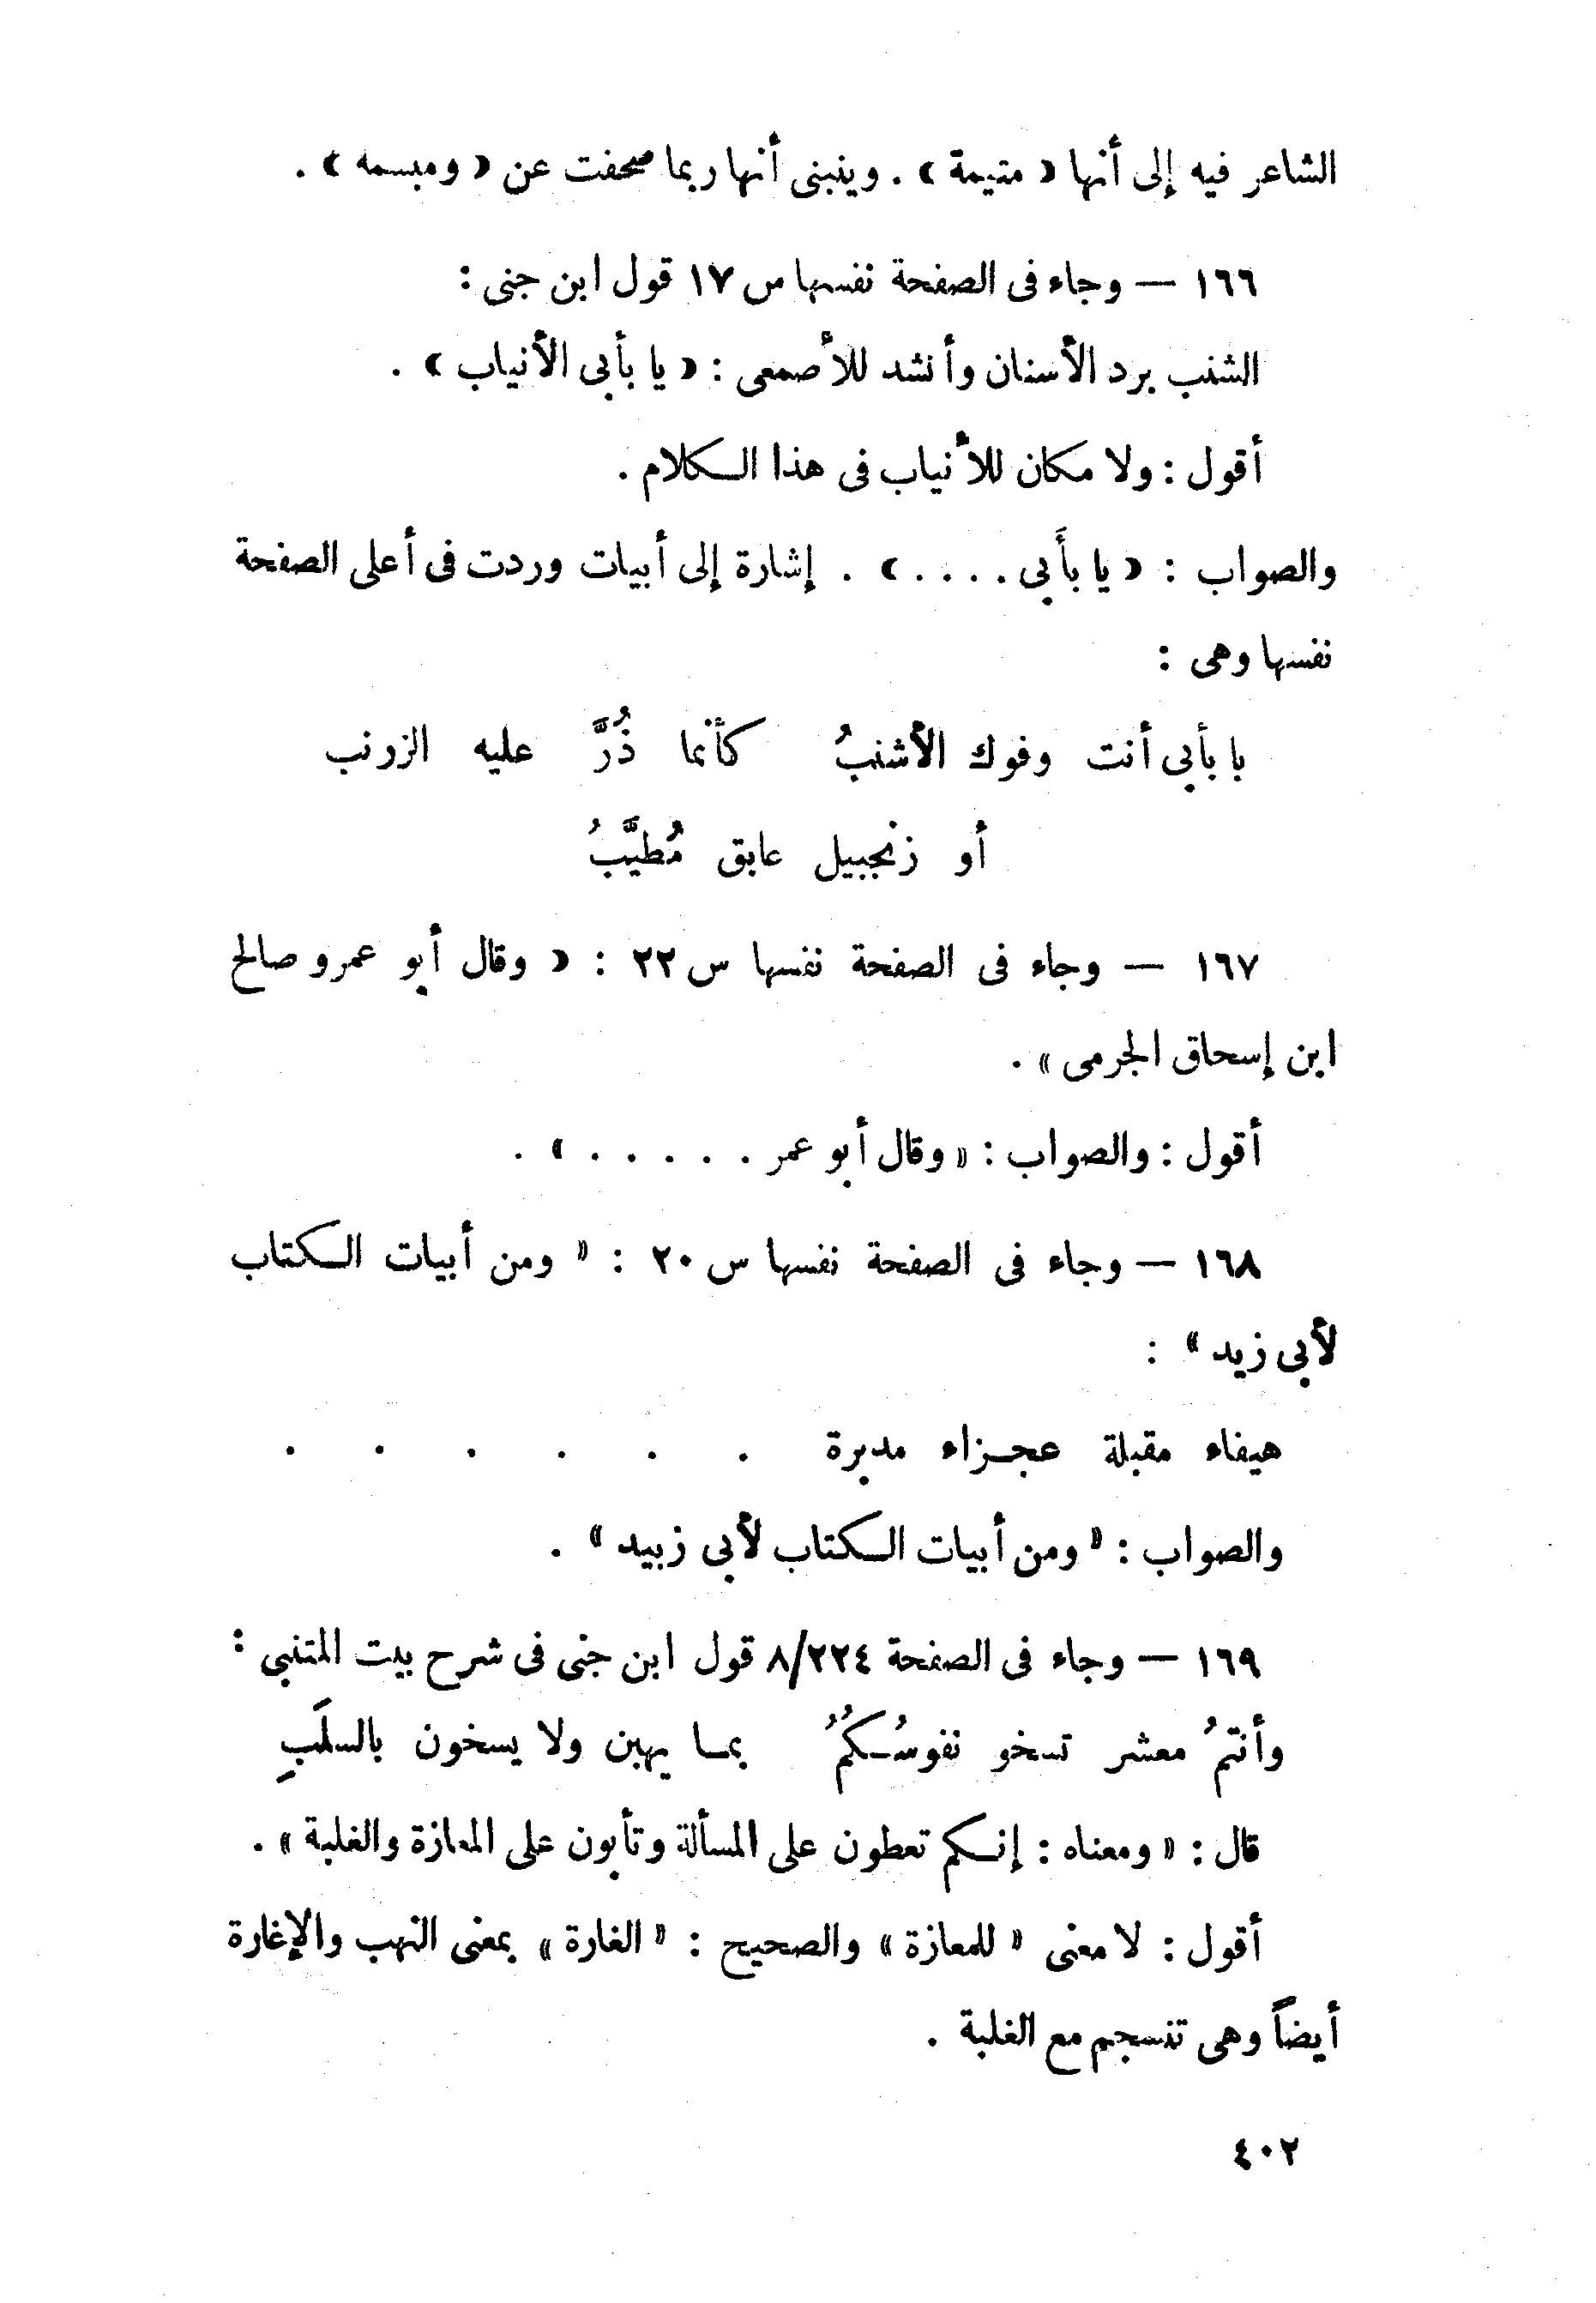 الشاعر فيه إلى أنها « متيمة » . وينبنى أنها ربما صحفت عن « ومبسمه » .
١٦٦ — وجاء فى الصفحة نفسها س ١٧ قول ابن جنى :
الشنب برد الأسنان وأنشد للأصمعى : « يا بأبى الأنياب » .
أقول : ولا مكان للأنياب فى هذا الكلام .
والصواب : « يا بأَبى . . . . » . إشارة إلى أبيات وردت فى أعلى الصفحة
نفسها وهى :
با بأبى أنت وفوك الأشنبُ كأنما ذُرَّ عليه الزرنب
أو زنجبيل عابق مُطيَّبُ
١٦٧ — وجاء فى الصفحة نفسها س ٢٢ : « وقال أبو عمرو صالح
ابن إسحاق الجرمى » .
أقول : والصواب : « وقال أبو عمر . . . . . » .
١٦٨ — وجاء فى الصفحة نفسها س ٢٠ : « ومن أبيات الكتاب
لأبى زيد » :
هيفاء مقبلة عجـزاء مدبرة . . . . . .
والصواب : « ومن أبيات الكتاب لأبى زبيد » .
١٦٩ — وجاء فى الصفحة ٨/٢٢٤ قول ابن جنى فى شرح بيت المتنبى :
وأنتمُ معشر تسخو نفوسُـكُمُ بمـا يهبن ولا يسخون بالسلَبِ
قال : « ومعناه : إنـكم تعطون على المسألة وتأبون على المعازة والغلبة » .
أقول : لا معنى « للمعازة » والصحيح : « الغارة » بمعنى النهب والإغارة
أيضاً وهى تنسجم مع الغلبة .
٤٠٢